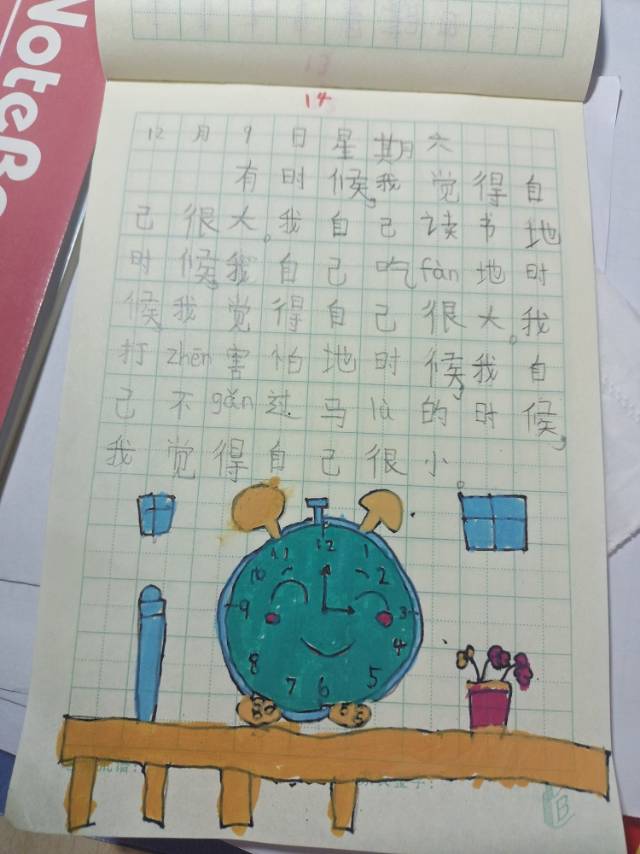 NoteBo
14
12月9日星期六
有时候，我觉得自
己很大。我自己读书地
时候，我自己吃fàn地时
候，我觉得自己很大。我
打zhēn害怕地时候，我自
己不gǎn过马lù的时候，
我觉得自己很小。
12
11 1
10 2
9 3
8 4
7 6 5
B